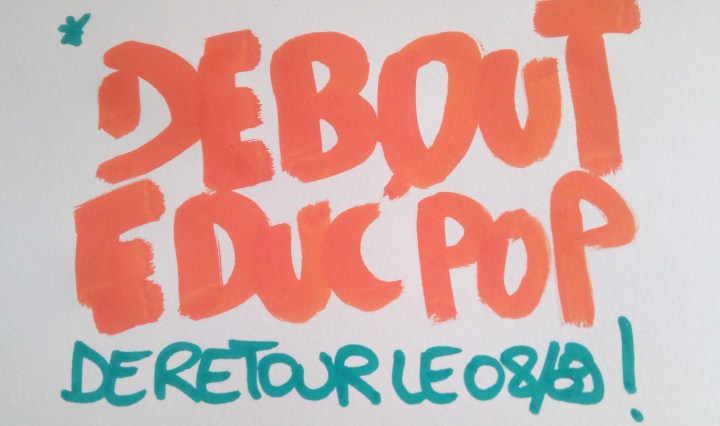 * DEBOUT
EDUC POP
DE RETOUR LE 08/ !